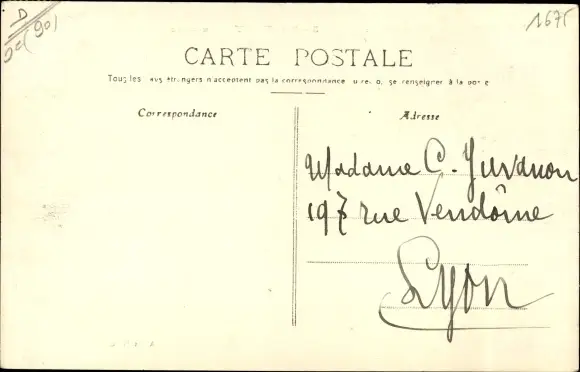 D
90(90)
1675
CARTE POSTALE
Tous les pays étrangers n'acceptent pas la correspondance au recto, se renseigner à la poste
Correspondance
Adresse
Madame C. Juvanon
197 rue Vendôme
Lyon